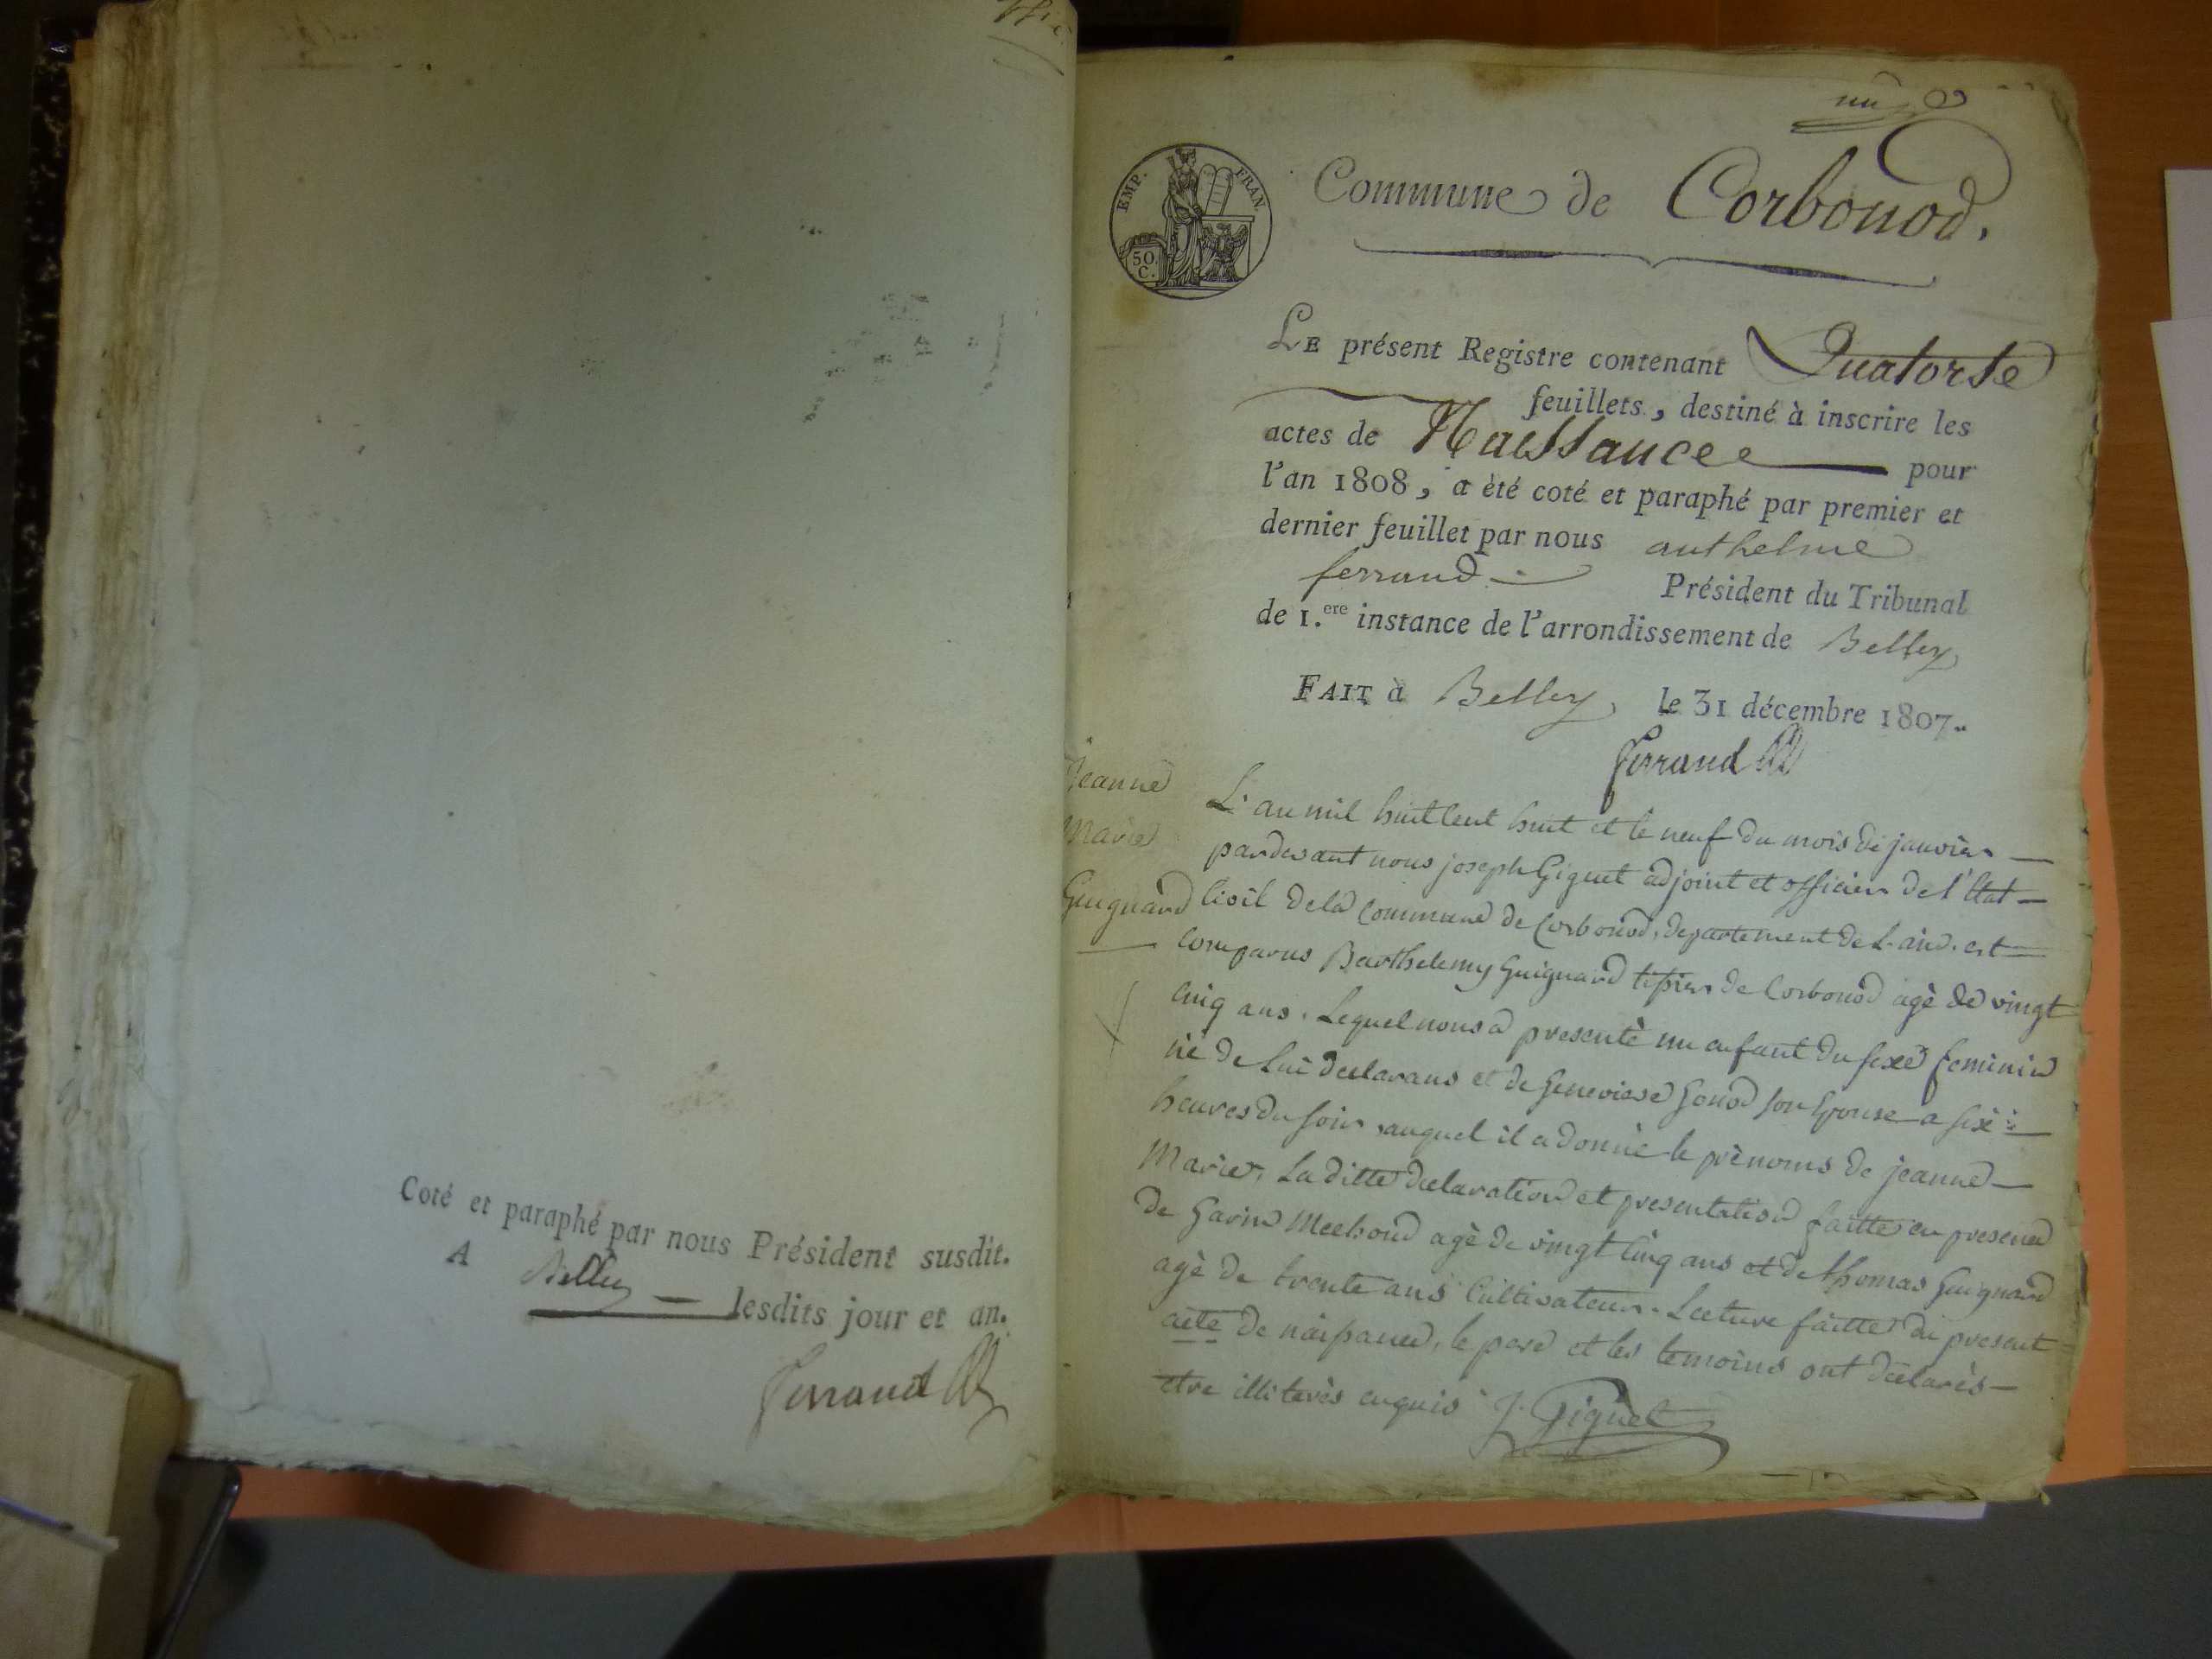 Coté et paraphé par nous Président susdit.
A Belley lesdits jour et an.
Ferrand
EMP. FRAN.
50.
C.
Commune de Corbonod.
LE présent Registre contenant Quatorse
feuillets, destiné à inscrire les
actes de Naissance pour
l'an 1808, a été coté et paraphé par premier et
dernier feuillet par nous anthelme
ferrand Président du Tribunal
de 1.ere instance de l'arrondissement de Belley
FAIT à Belley, le 31 décembre 1807.
Ferrand
Jeanne
Marie
Guignard
L'an mil huit cent huit et le neuf du mois de janvier
pardevant nous joseph Giguet adjoint et officier de l'Etat
Civil de la Commune de Corbonod, departement de L'ain. est
comparus Barthelemy Guignard tissier de Corbonod agè de vingt
Cinq ans. Lequel nous a presentè un enfant du sexe feminin
nè de lui declarans et de Genevieve Gonod son Epouse a six
heures du soir, auquel il a donnè le prènoms de jeanne
Marie. La ditte declaration et presentation faitte en presence
de Garin Meehoud agè de vingt Cinq ans et de thomas Guignard
agè de trente ans Cultivateur. Lecture faitte du present
acte de naissance, le pere et les temoins ont declarès
etre illiterès enquis J. Giguet